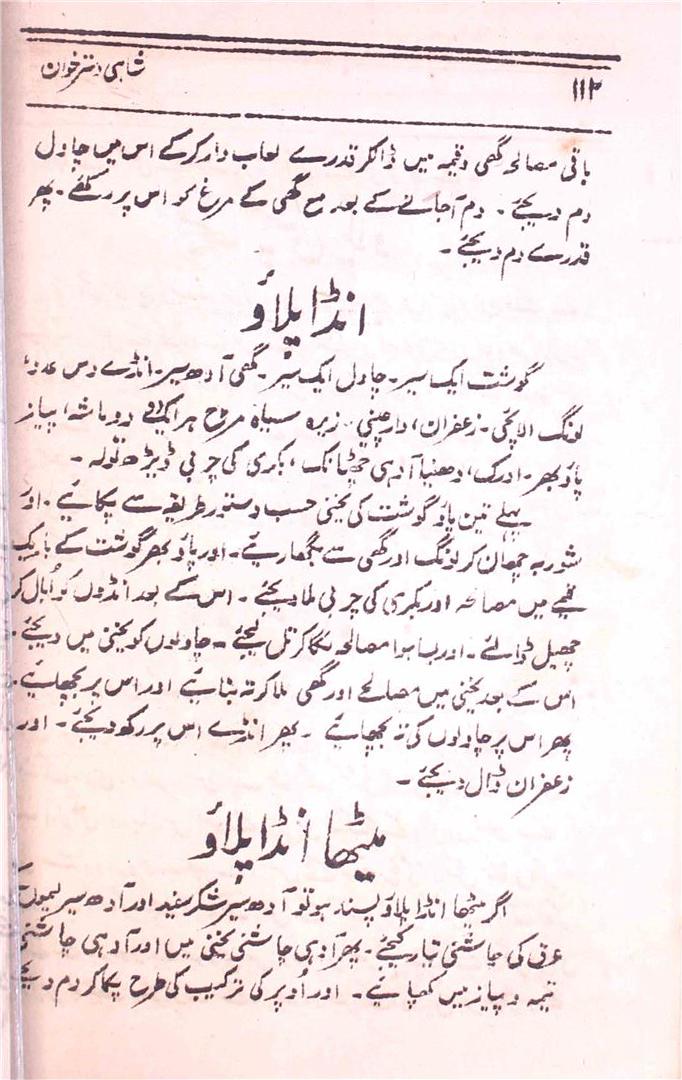 ۱۱۲ شاہی دسترخوان
باقی مصالحہ گھی وقیمہ میں ڈالکر قدرے لعاب دار کرکے اس میں چاول
دم دیجئے۔ دم آجانے کے بعد مع گھی کے مرغ کو اس پر رکھئے۔ پھر
قدرے دم دیجئے۔
انڈا پلاؤ
گوشت ایک سیر۔ چاول ایک سیر۔ گھی آدھ سیر۔ انڈے دس عدد،
لونگ الائچی۔ زعفران، دارچینی۔ زیرہ سیاہ مرچ ہر ایک دو ماشہ، پیاز
پاؤ بھر۔ ادرک، دھنیا آدہی چھٹانک، بکری کی چربی ڈیڑھ تولہ۔
پہلے تین پاؤ گوشت کی یخنی حسب دستور طریقہ سے پکائیے۔ اور
شوربہ چھان کر لونگ اور گھی سے بگھاریئے۔ اور پاؤ بھر گوشت کے باریک
قیمے میں مصالحہ اور بکری کی چربی ملا دیجئے۔ اس کے بعد انڈوں کو اُبال کر
چھیل ڈالئے۔ اور بسا ہوا مصالحہ لگا کر تل لیجئے۔ چاولوں کو یخنی میں دیجئے۔
اس کے بعد یخنی میں مصالحے اور گھی ملا کر تہ بنائیے اور اس پر بچھائیے۔
پھر اس پر چاولوں کی تہ بچھائیے۔ پھر انڈے اس پر رکھ دیجئے۔ اور
زعفران ڈال دیجئے۔
میٹھا انڈا پلاؤ
اگر میٹھا انڈا پلاؤ پسند ہو تو آدھ سیر شکر سفید اور آدھ سیر لیموں
عرق کی چاشنی تیار کیجئے۔ پھر آدہی چاشنی یخنی میں اور آدہی چاشنی
قیمہ و پیاز میں کھپائیے۔ اور اُوپر کی ترکیب کی طرح پکا کر دم